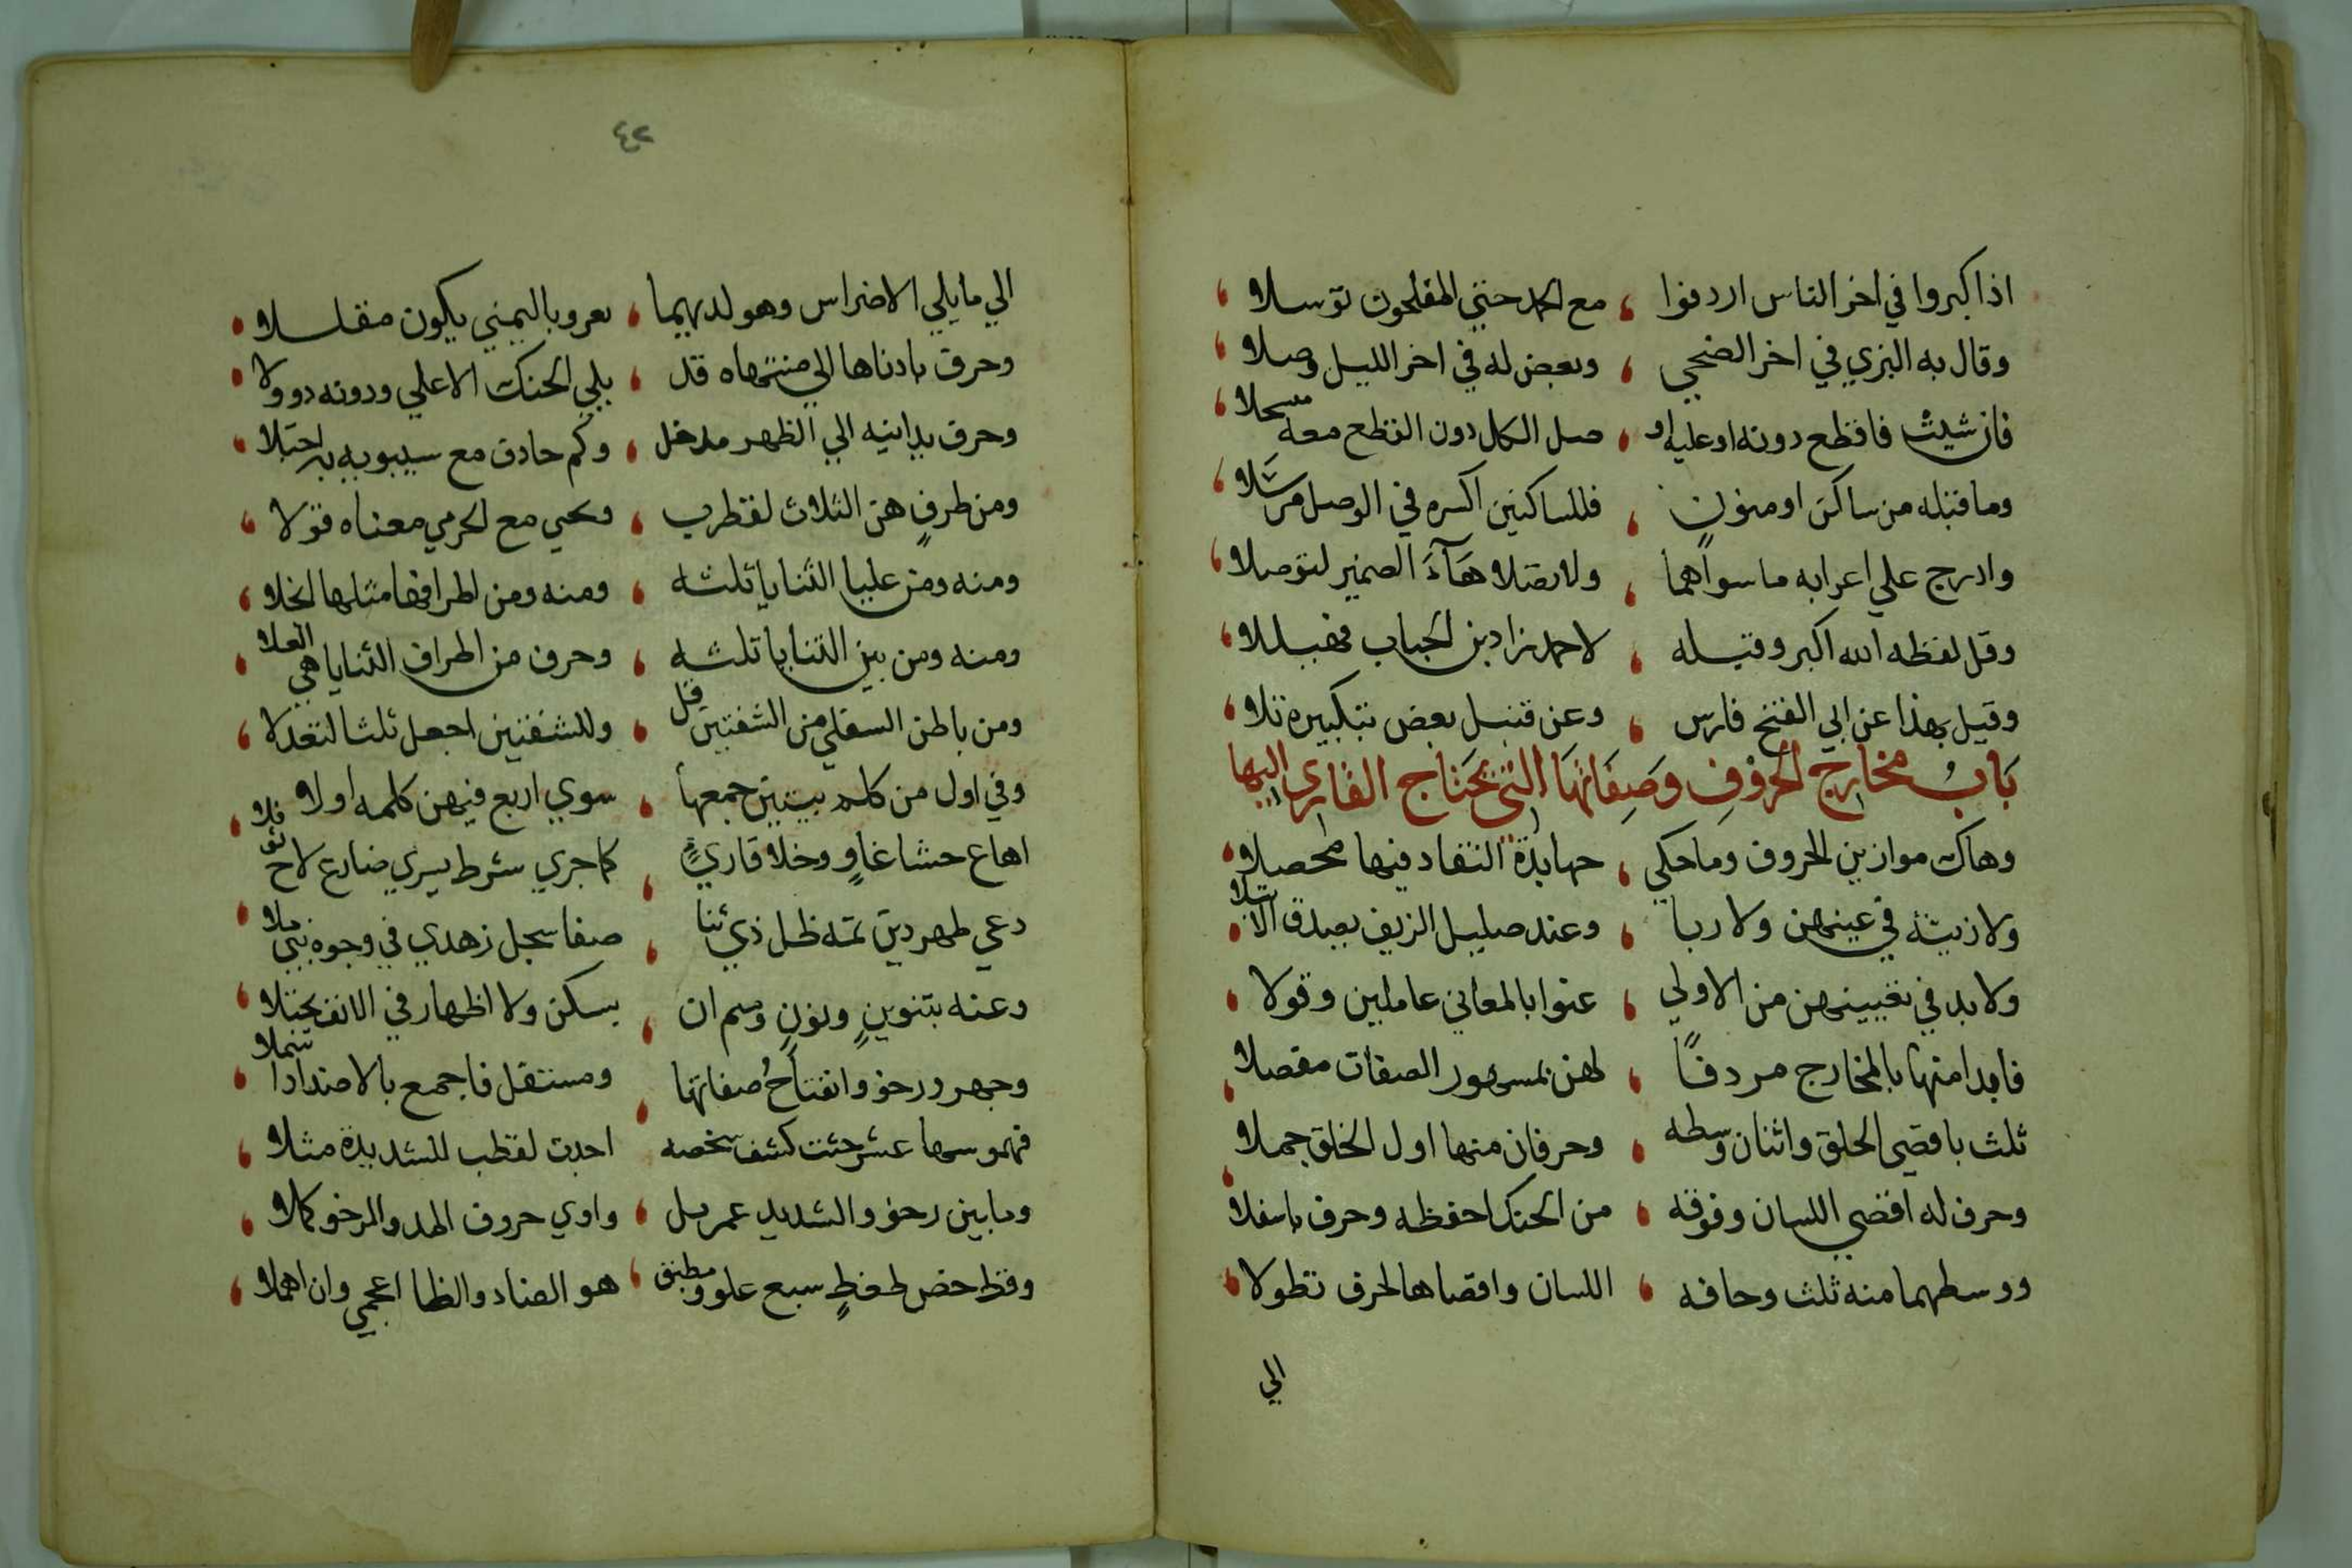 اذا كبروا في اخر الناس اردفوا ، مع الحمد حتي المفلحون توسلا ،
وقال به البزي في اخر الضحي ، وبعض له في اخر الليل وصلا ،
فان شيت فاقطع دونه او عليه او ، صل الكل دون القطع معه مسحلا ،
وما قبله من ساكن او منونٍ ، فللساكنين اكسره في الوصل مرسَلا ،
وادرج علي اعرابه ما سواهما ، ولا تصلا هآء الضمير لتوصلا ،
وقل لفظه الله اكبر وقبله ، لاحمد زاد بن الحباب فهيللا ،
وقيل بهذا عن ابي الفتح فارس ، وعن قنبل بعض بتكبيره تلا ،
بَابُ مخارج الحروفِ وَصِفَاتهَا التي يحتَاج القَاري اليها
وهاك موازين الحروف وما حكي ، جهابذة النقاد فيها محصلا ،
ولا ريبة في عينهن ولا ربا ، وعند صليل الزيف يصدق الابتلا ،
ولا بد في تعيينهن من الاولي ، عنوا بالمعاني عاملين وقولا ،
فابدا منها بالمخارج مردفًا ، لهن بمشهور الصفات مفصلا ،
ثلث باقصي الحلق واثنان وسطه ، وحرفان منها اول الحلق جملا ،
وحرف له اقصي اللسان وفوقه ، من الحنك احفظه وحرف باسفلا
ووسطهما منه ثلث وحافه ، اللسان واقصاها لحرف تطولا ،
الي
٤٢
الي ما يلي الاضراس وهو لديهما ، يعز وباليمني يكون مقللا ،
وحرف بادناها الي منتهاه قد ، يلي الحنك الاعلي ودونه ذو ولا ،
وحرف يدانيه الي الظهر مدخل ، وكم حاذق مع سيبويه به اجتلا ،
ومن طرفٍ هن الثلاث لقطرب ، ويحيي مع الجرمي معناه قولا ،
ومنه ومن عليا الثنايا ثلثه ، ومنه ومن اطرافها مثلها انجلا ،
ومنه ومن بين الثنايا ثلثه ، وحرف من اطراف الثنايا هي العلا ،
ومن باطن السفلي من الشفتين قل ، وللشفتين اجعل ثلثا لتعدلا ،
وفي اول من كلم بيتين جمعها ، سوي اربع فيهن كلمه اولا ،
اهاع حشا غاوٍ وخلا قاريءٍ ، كما جري شرط يسري ضارع لاح نوفلا ،
دعي طهر دين تمه ظل ذي ثنا ، صفا سجل زهدي في وجوه بني ملا ،
وغنه تنوينٍ ونونٍ وميم ان ، يسكن ولا اظهار في الانف يجتلا ،
وجهر ورخو وانفتاحُ صفاتها ، ومستفل فاجمع بالاضداد اشملا ،
فمهموسها عشر حثت كسف شخصه ، اجدت لقطب للشديدة مثلا ،
وما بين رخو والشديد عمر نل ، واوي حروف المد والرخو كملا ،
وقظ خص ضغطٍ سبع علو ومطبق ، هو الضاد والظا اعجمي وان اهملا ،